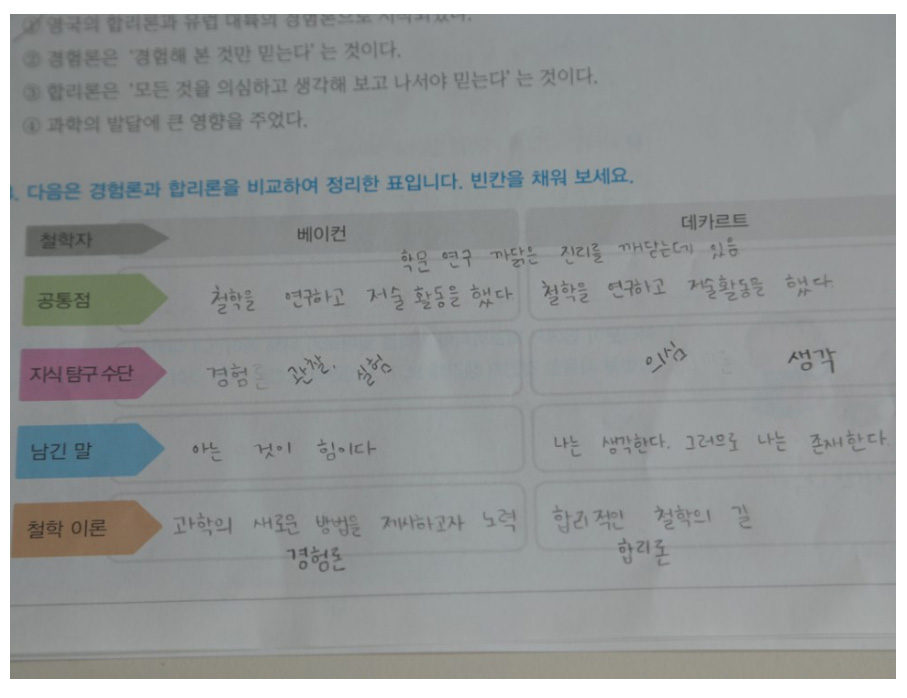 ① 영국의 합리론과 유럽 대륙의 경험론으로 시작되었다.
② 경험론은 '경험해 본 것만 믿는다'는 것이다.
③ 합리론은 '모든 것을 의심하고 생각해 보고 나서야 믿는다'는 것이다.
④ 과학의 발달에 큰 영향을 주었다.
다음은 경험론과 합리론을 비교하여 정리한 표입니다. 빈칸을 채워 보세요.
철학자 베이컨 데카르트
학문 연구 까닭은 진리를 깨닫는데 있음
공통점 철학을 연구하고 저술 활동을 했다 철학을 연구하고 저술활동을 했다.
지식 탐구 수단 경험론 관찰, 실험 의심 생각
남긴 말 아는 것이 힘이다 나는 생각한다. 그러므로 나는 존재한다.
철학 이론 과학의 새로운 방법을 제시하고자 노력 합리적인 철학의 길
경험론 합리론